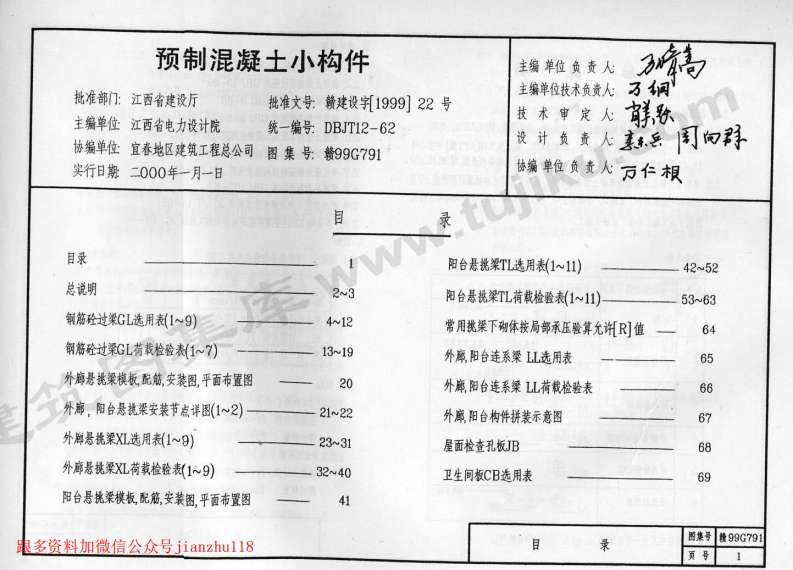 预制混凝土小构件
批准部门: 江西省建设厅 批准文号: 赣建设字[1999] 22 号
主编单位: 江西省电力设计院 统一编号: DBJT12-62
协编单位: 宜春地区建筑工程总公司 图 集 号: 赣99G791
实行日期: 二000年一月一日
主编 单位 负 责 人:
主编单位技术负责人: 万钢
技 术 审 定 人:
设 计 负 责 人: 周向群
协编 单位 负 责 人: 万仁根
目 录
目录 1
总说明 2~3
钢筋砼过梁GL选用表(1~9) 4~12
钢筋砼过梁GL荷载检验表(1~7) 13~19
外廊悬挑梁模板,配筋,安装图,平面布置图 20
外廊, 阳台悬挑梁安装节点详图(1~2) 21~22
外廊悬挑梁XL选用表(1~9) 23~31
外廊悬挑梁XL荷载检验表(1~9) 32~40
阳台悬挑梁模板,配筋,安装图,平面布置图 41
阳台悬挑梁TL选用表(1~11) 42~52
阳台悬挑梁TL荷载检验表(1~11) 53~63
常用挑梁下砌体按局部承压验算允许[R]值 64
外廊,阳台连系梁 LL选用表 65
外廊,阳台连系梁 LL荷载检验表 66
外廊,阳台构件拼装示意图 67
屋面检查孔板JB 68
卫生间板CB选用表 69
目 录
图集号 赣99G791
页 号 1
建筑图集库 www.tujiku.com
跟多资料加微信公众号jianzhu118